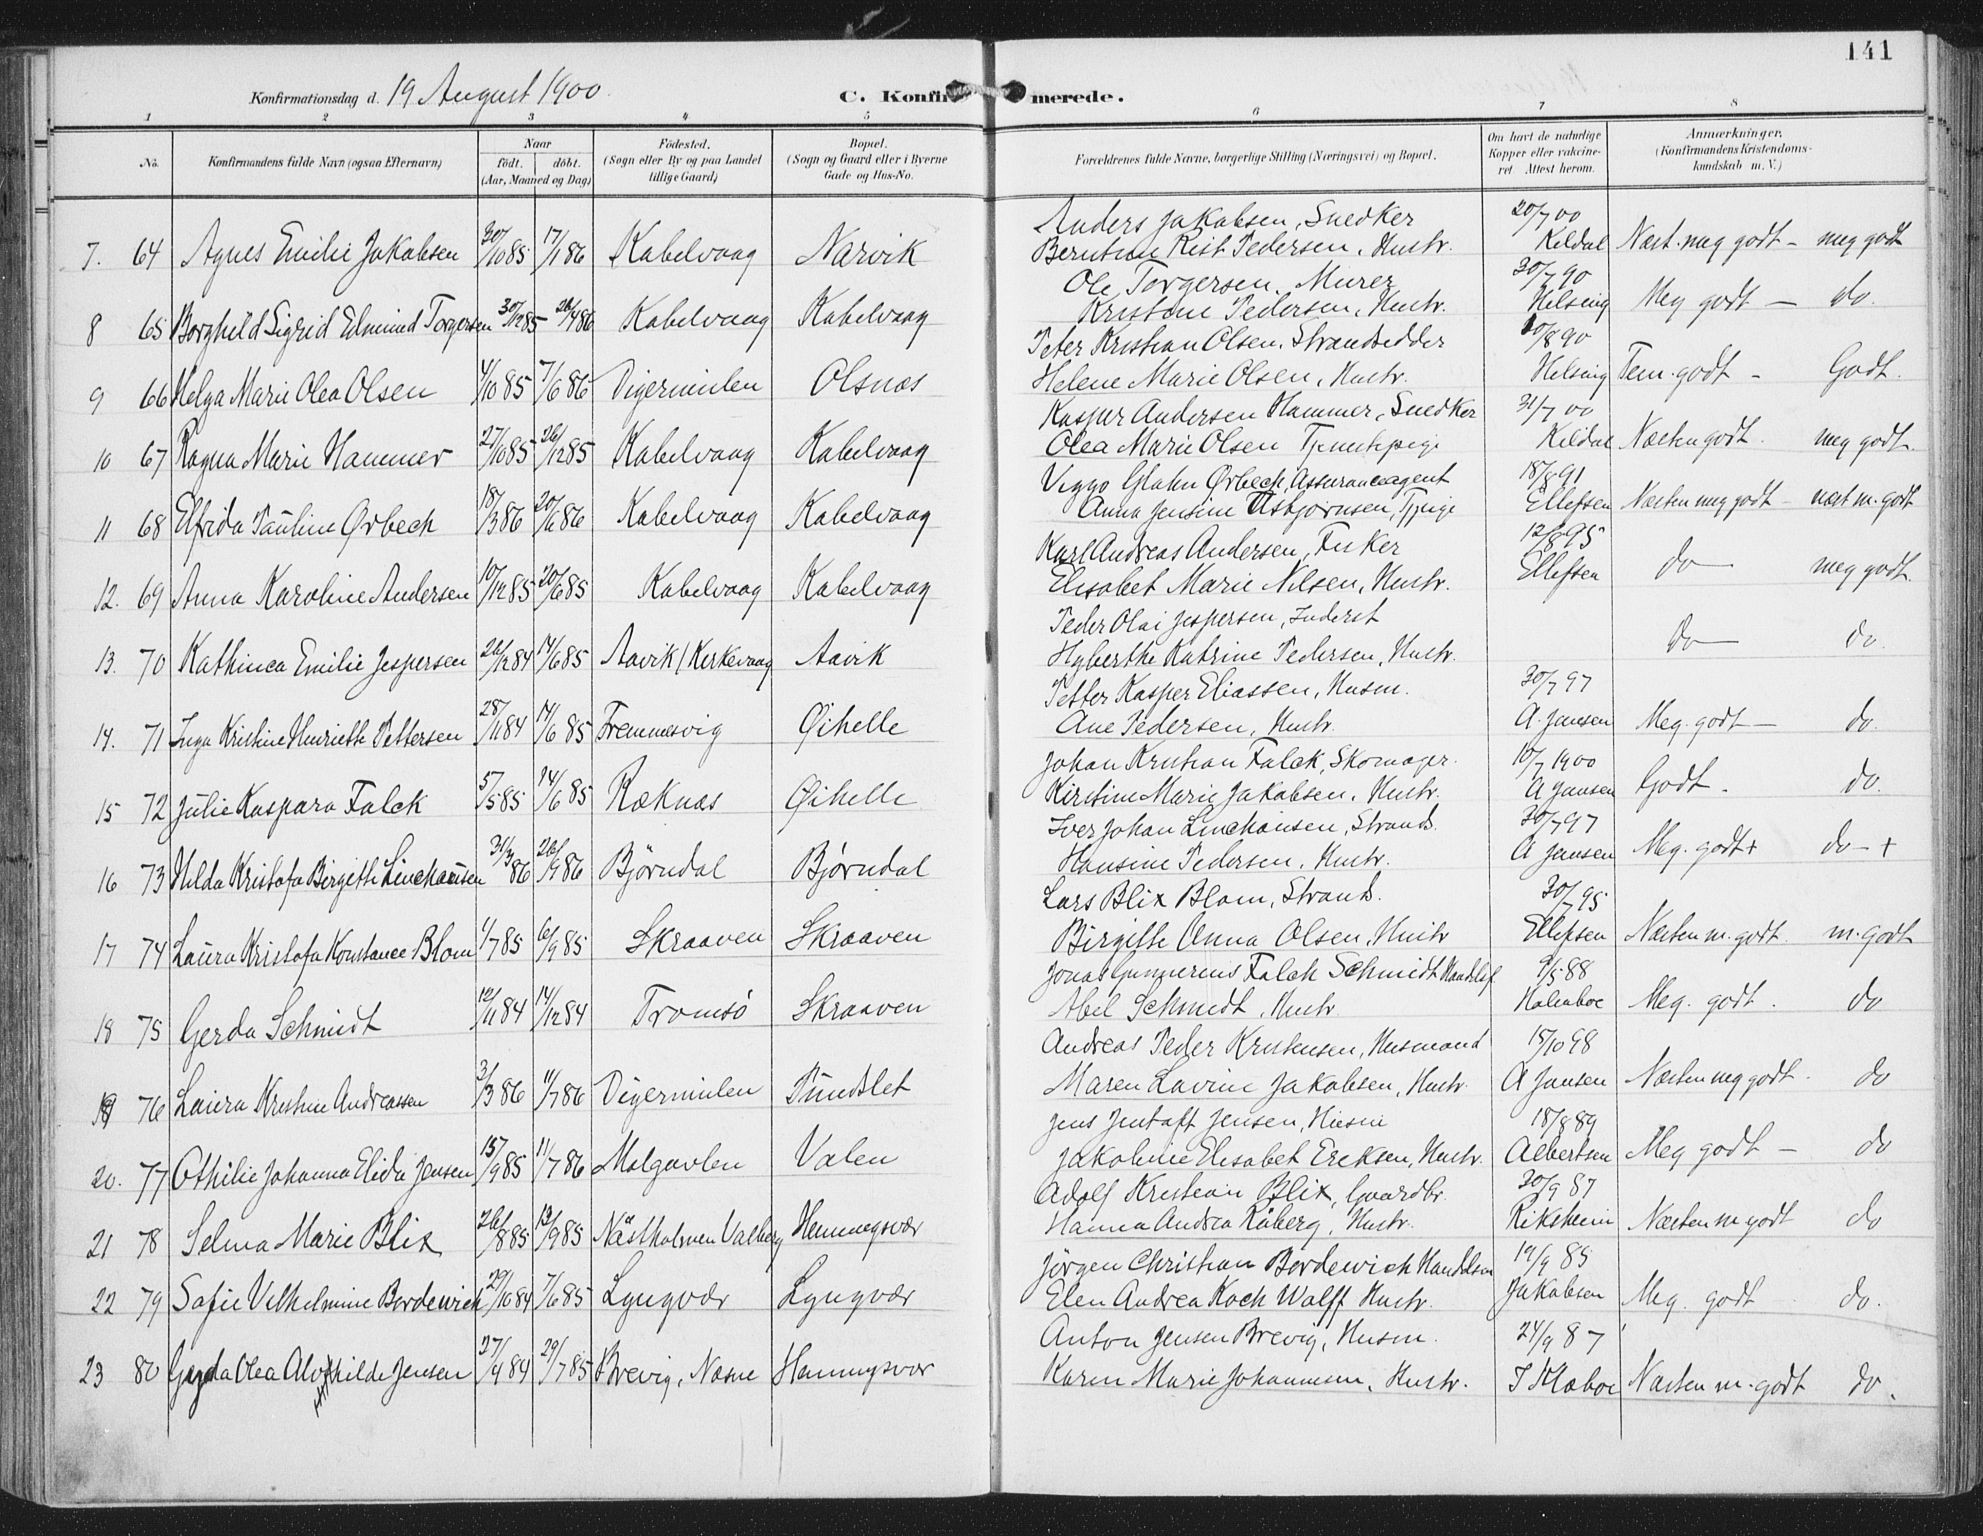 141
Konfirmationsdag d. 19 August 1900.
C. Konfirmerede.
1 2 3 4 5 6 7 8
No. Konfirmandens fulde Navn (ogsaa Efternavn) Naar födt. döbt. (Aar, Maaned og Dag) Födested. (Sogn eller By og paa Landet tillige Gaard) Bopæl. (Sogn og Gaard eller i Byerne Gade og Hus-No. Forældrenes fulde Navne, borgerlige Stilling (Næringsvei) og Bopæl. Om havt de naturlige Kopper eller vakcineret Attest herom. Anmærkninger. (Konfirmandens Kristendomskundskab m. V.)
Anders Jakobsen, Snedker 20/7 00
7. 64 Agnes Emilie Jakobsen 30/10 85 17/1 86 Kabelvaag Narvik Berntine Krist Pedersen, Hustr. Kildal Næst. meg godt - meg godt
Ole Torgersen, Murer 30/7 90
8 65 Borghild Sigrid Edmund Torgersen 30/12 85 26/4 86 Kabelvaag Kabelvaag Kristine Pedersen, Hustr. Helsing Meg godt - do.
Peter Kristian Olsen, Strandsidder 10/8 90
9 66 Helga Marie Olea Olsen 4/10 85 7/6 86 Digermulen Olsnæs Helene Marie Olsen, Hustr. Helsing Tem. godt - Godt.
Kasper Andersen Hammer, Snedker 31/7 00
10 67 Ragna Marie Hammer 27/10 85 26/12 85 Kabelvaag Kabelvaag Olea Marie Olsen Tjenestepige Kildal Næsten godt. meg godt.
Viggo Glahn Ørbech, Assuranceagent 18/8 91
11 68 Elfrida Pauline Ørbech 18/3 86 20/6 86 Kabelvaag Kabelvaag Anna Jensine Asbjørnsen, Tjpige Ellefsen Næsten meg godt - næst m. godt
Karl Andreas Andersen, Fisker 12/8 95
12. 69 Anna Karoline Andersen 10/12 85 20/6 85 Kabelvaag Kabelvaag Elisabet Marie Nilsen, Hustr. Ellefsen do - meg godt
Peder Olai Jespersen, Inderst
13. 70 Kathinca Emilie Jespersen 26/12 84 14/6 85 Aavik/Kirkevaag Aavik Hyberthe Katrine Pedersen, Hustr. do - do.
Petter Kasper Eliassen, Husm. 30/7 97
14. 71 Inga Kristine Henriette Pettersen 28/11 84 14/6 85 Fremmesvig Øihelle Ane Pedersen, Hustr. A. Jansen Meg. godt - do.
Johan Kristian Falck, Skomager. 10/7 1900
15 72 Julie Kaspara Falck 5/5 85 14/6 85 Ræknæs Øihelle Kirstine Marie Jakobsen, Hustr. A Jansen Godt. do.
Iver Johan Linchausen, Strands. 30/7 97
16 73 Hilda Kristofa Birgitte Linchausen 31/3 86 26/9 86 Björndal Bjørndal Hansine Pedersen, Hustr. A Jansen Meg. godt + do - +
Lars Blix Blom, Strands. 30/7 95
17 74 Laura Kristofa Konstance Blom 1/7 85 6/9 85 Skraaven Skraaven Birgitte Anna Olsen, Hustr Ellefsen Næsten m. godt. m. godt
Jonas Falck Schmidt 9/5 88
18 75 Gerda Schmidt 12/11 84 14/12 84 Tromsö Skraaven Abel Schmidt, Hustr Meg. godt. do
Andreas Peder Kristensen, Husmand 15/10 98
19 76 Laura Kristine Andreassen 31/3 86 11/7 86 Digermulen Pundslet Maren Lavine Jakobsen, Hustr. A Jansen Næsten meg godt. do
Jens Jentoft Jensen, Husm 18/8 89
20. 77 Othilie Johanna Elida Jensen 15/9 85 11/7 86 Molgavlen Valen Jakobine Elisabet Ereksen, Hustr. Albertsen Meg godt - do
Adolf Kristian Blix, Gaardbr. 30/9 87
21 78 Selma Marie Blix 26/8 85 13/9 85 Nästholmen Valberg Henningsvær Hanna Andrea Råberg, Hustr. Riksheim Næsten m godt do
Jörgen Christian Bordewich Handelsm 19/9 85
22 79 Sofie Vilhelmine Bordewich 29/10 84 7/6 85 Lyngvær Lyngvær Elen Andrea Koch Wolff Hustr. Jakobsen Meg. godt do.
Anton Jensen Brevig, Husm. 24/9 87
23 80 Gjerda Olea Alvhilde Jensen 27/9 84 29/7 85 Brevig, Næsne Henningsvær Karen Marie Johannesen, Hustr. J Klæboe Næsten m. godt do.